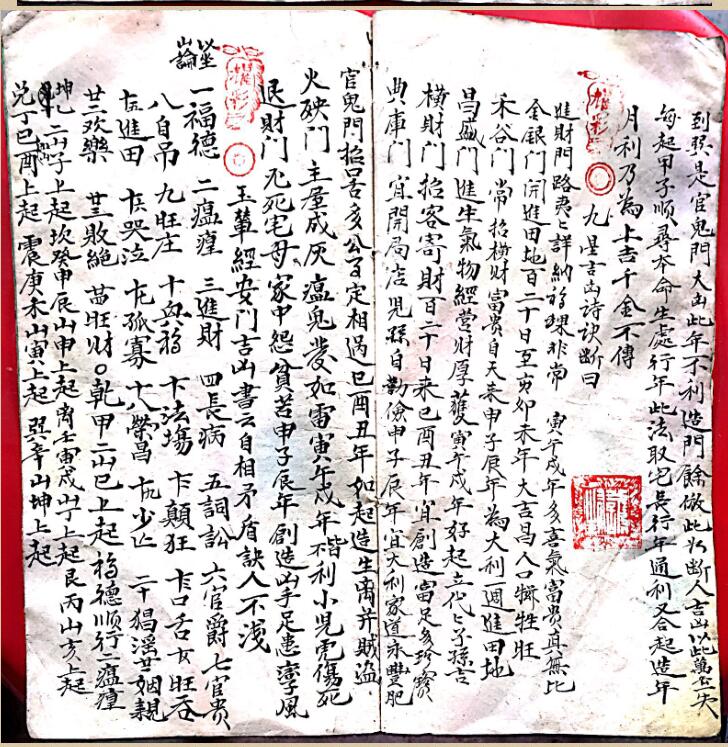 到震是官鬼門大凶此年不利造門餘倣此以断人吉凶以此萬正失
每起甲子順尋本命生處行年此法取宅長行年通利又合起造年
月利乃為上吉千金不傳
九星吉凶詩訣断曰
進財門路喪〻詳納福禄非常 寅午戌年多喜氣富贵真無比
金銀门渭進田地百二十日至亥卯未年大吉昌人口犅牲旺
禾谷门常招横财富贵自天来申子辰年為大利一週進田地
昌盛门進生氣物經营财厚獲寅午戌年好起立代〻子孫吉
横财门招客寄财百二十日来巳酉丑年宜創造富足多珍寶
典庫门宜開局店児孫自勤儉申子辰年宜大利家道永豐肥
官鬼門招口舌亥公子定相遇巳酉丑年如起造生离并賊盗
火殃门主產成灰瘟鬼發如雷寅午戌年皆不利小児電傷死
退财门死宅母家中怨貧苦申子辰年創造凶手足患孿風
玉輦經安门吉凶書云自相矛盾訣人不浅
以坐山論
一福德 二瘟瘽 三進財 四長病 五詞訟 六官爵 七官贵
八自吊 九旺庄 十興福 十一法場 十二顛狂 十三口舌 十四旺蚕
十五進田 十六哭泣 十七孤寡 十八榮昌 十九少亡 二十猖滛 廿一姻親
廿二欢樂 廿三敗絶 廿四旺财〇乾甲二山巳上起 福德顺行二瘟瘽
坤乙二山子上起坎癸申辰山申上起离壬寅戌山丁上起艮丙山亥上起
兑丁巳酉上起 震庚未山寅上起 巽辛山坤上起